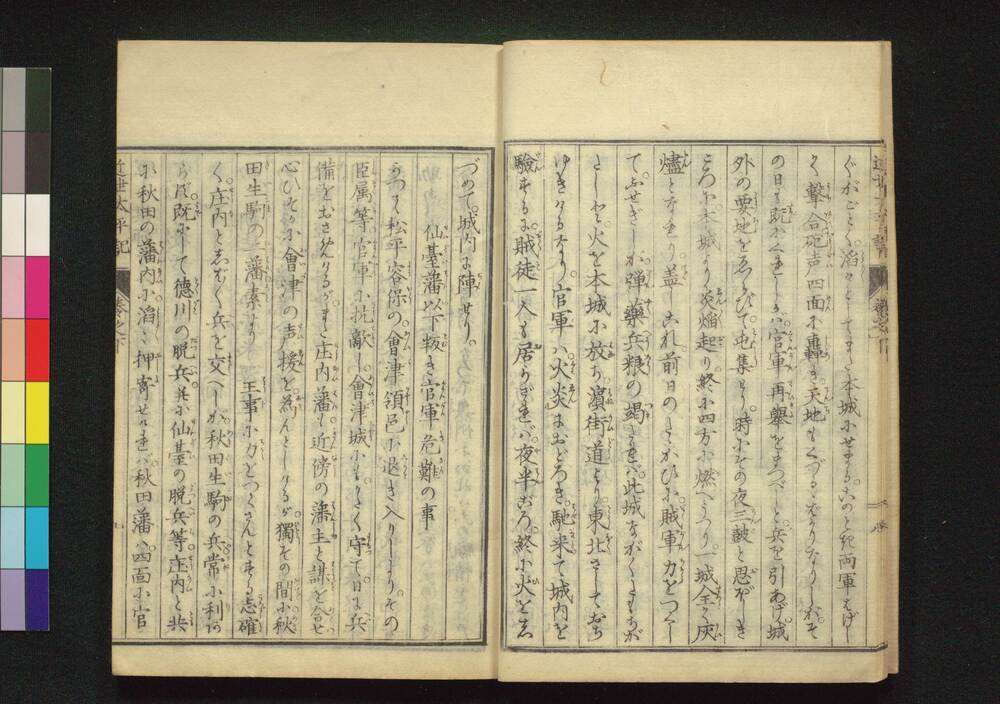 ぐがごとく滔々としてまた本城にせまるこのとき両軍はげし
く撃合砲声四面に轟き天地もくづるゝばかりなりしがそ
の日も既にくれしかバ官軍再擧をまつべしと兵を引あげ城
外の要地をえらびて屯集せり時にその夜三鼓と思ほしき
ころに本城より炎焔起り終に四方に燃へうつり一城全く灰
燼となれり蓋しこれ前日のたゝかひに賊軍力をつくし
てふせぎしが弾藥兵粮の竭きれバ此城ながくたもちが
たしと火を本城に放ち濱街道より東北さしておち
ゆきけるなり官軍ハ火炎におどろき馳来て城内を
験するに賊徒一人も居らざれバ夜半ごろ終に火をし
づめて城内に陣せり
仙基藩以下叛き官軍危難の事
かつて松平容保の會津領邑に退き入りしよりその
臣属等官軍に抗敵し會津城にもかたく守て日に兵
備をおさめけるがまた庄内藩も近傍の藩主と謀を合せ
心ひそかに會津の声援を為んとしけるが獨その間に秋
田生駒の二藩素より 王事に力をつくさんとする志確
く庄内としばしば兵を交へしが秋田生駒の兵常に利あ
らず既にして徳川の脱兵并に仙基の脱兵等庄内と共
に秋田の藩内に滔々押寄せけれバ秋田藩ハ四面に官
近世太平記
巻之下